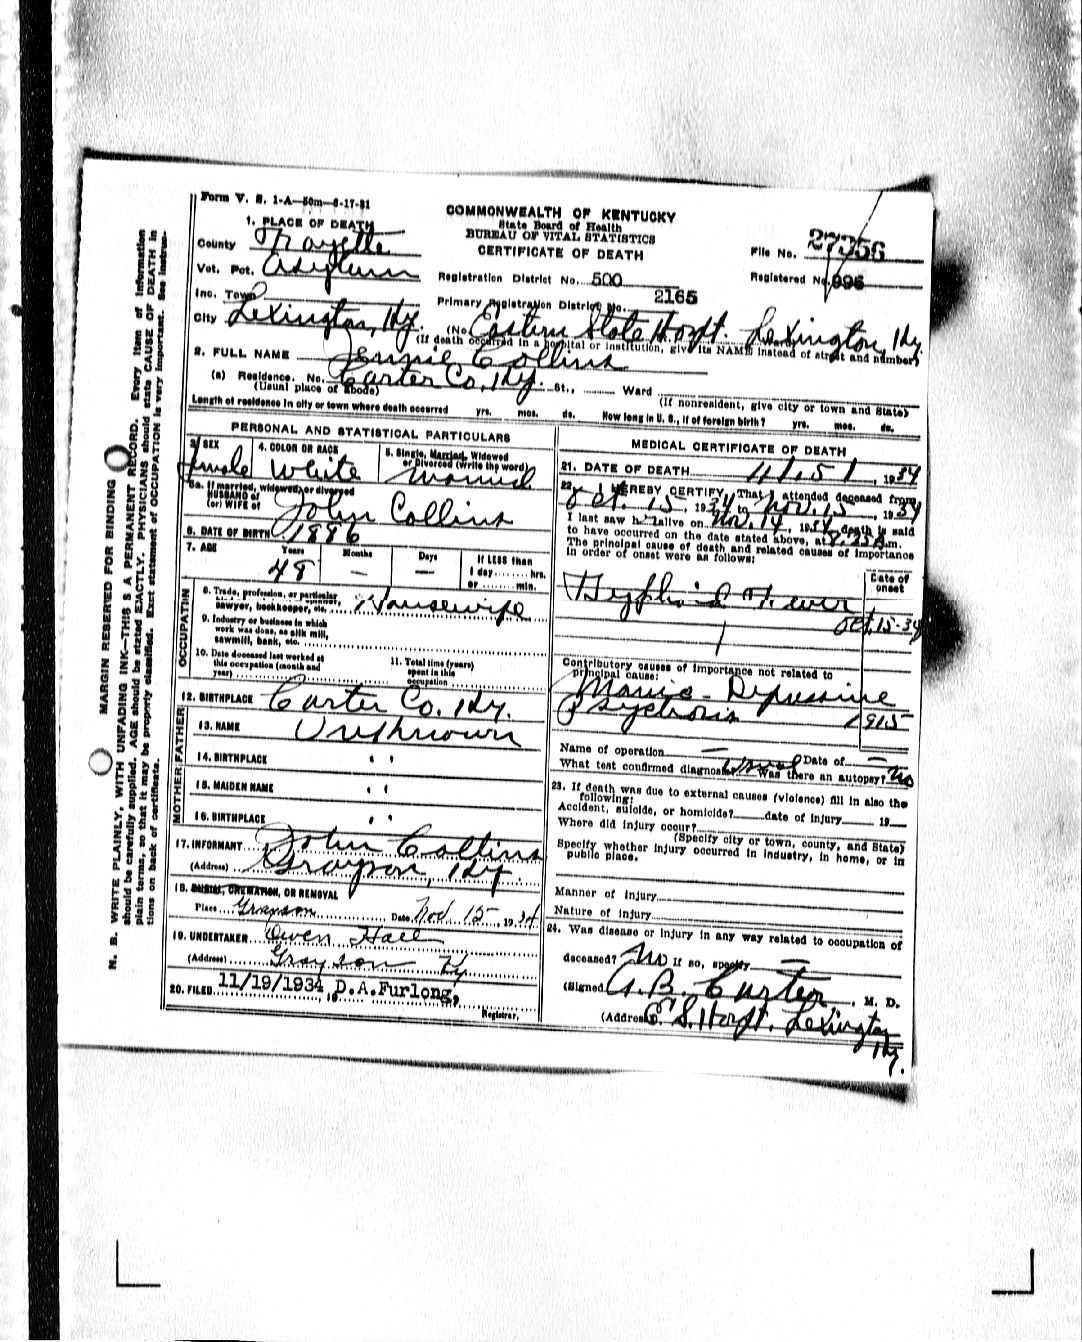 Form V. S. 1-A—50m—6-17-31
COMMONWEALTH OF KENTUCKY
State Board of Health
BUREAU OF VITAL STATISTICS
CERTIFICATE OF DEATH
File No. 27356
Registered No. 996
1. PLACE OF DEATH
County Fayette
Vot. Pct. Asylum
Registration District No. 500
Inc. Town
Primary Registration District No. 2165
City Lexington, Ky. (No. Eastern State Hospt. Lexington, Ky
(If death occurred in a hospital or institution, give its NAME instead of street and number)
2. FULL NAME Jennie Collins
(a) Residence. No. Carter Co, Ky. St., Ward
(Usual place of abode) (If nonresident, give city or town and State)
Length of residence in city or town where death occurred yrs. mos. ds. How long in U. S., if of foreign birth? yrs. mos. ds.
PERSONAL AND STATISTICAL PARTICULARS
3. SEX Female
4. COLOR OR RACE White
5. Single, Married, Widowed or Divorced (write the word) Married
5a. If married, widowed, or divorced
HUSBAND of
(or) WIFE of John Collins
6. DATE OF BIRTH 1886
7. AGE Years Months Days If LESS than
48 — — 1 day........hrs.
or........min.
OCCUPATION
8. Trade, profession, or particular
sawyer, bookkeeper, etc. Housewife
9. Industry or business in which
work was done, as silk mill,
sawmill, bank, etc.
10. Date deceased last worked at
this occupation (month and
year)
11. Total time (years)
spent in this
occupation
12. BIRTHPLACE Carter Co. Ky.
FATHER
13. NAME Unknown
14. BIRTHPLACE " "
MOTHER
15. MAIDEN NAME " "
16. BIRTHPLACE " "
17. INFORMANT John Collins
(Address) Grayson, Ky.
18. BURIAL, CREMATION, OR REMOVAL
Place Grayson Date Nov 15, 1934
19. UNDERTAKER Owen Hall
(Address) Grayson Ky
20. FILED 11/19/1934, 19 D.A.Furlong,
Registrar.
MEDICAL CERTIFICATE OF DEATH
21. DATE OF DEATH 11/15/, 1934
22. I HEREBY CERTIFY, That I attended deceased from
Oct. 15, 1934 to Nov. 15, 1934
I last saw h alive on Nov. 14, 1934 death is said
to have occurred on the date stated above, at m.
The principal cause of death and related causes of importance
in order of onset were as follows:
Date of onset
Typhoid Fever
Oct. 15-34
1
Contributory causes of importance not related to
principal cause:
Manic - Depressive
Psychosis 1915
Name of operation — Date of —
What test confirmed diagnosis? Usual Was there an autopsy? No
23. If death was due to external causes (violence) fill in also the
following:
Accident, suicide, or homicide? date of injury 19
Where did injury occur?
(Specify city or town, county, and State)
Specify whether injury occurred in industry, in home, or in
public place.
Manner of injury
Nature of injury
24. Was disease or injury in any way related to occupation of
deceased? No If so, specify —
(Signed) A. B. Carter, M. D.
(Address) E. S. Hospt. Lexington
Ky.
MARGIN RESERVED FOR BINDING
N. B. WRITE PLAINLY, WITH UNFADING INK—THIS IS A PERMANENT RECORD. Every item of information
should be carefully supplied. AGE should be stated EXACTLY. PHYSICIANS should state CAUSE OF DEATH in
plain terms, so that it may be properly classified. Exact statement of OCCUPATION is very important. See instruc-
tions on back of certificate.